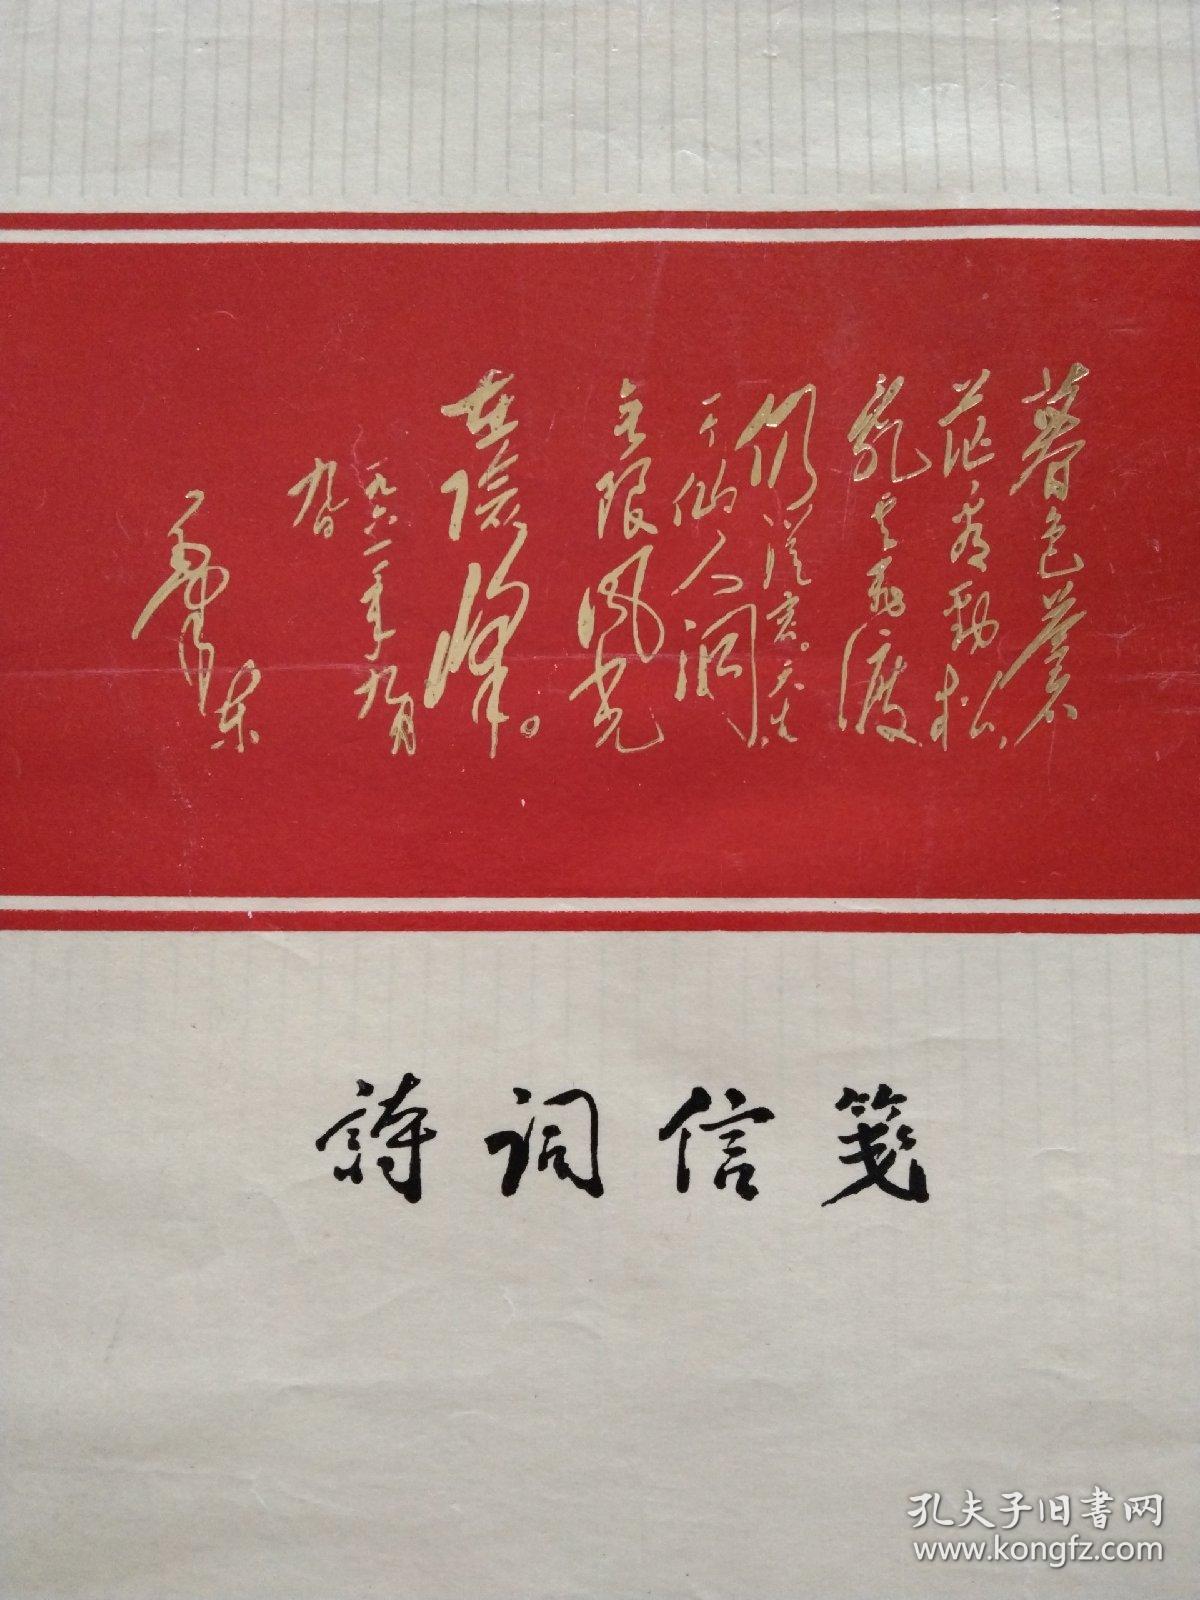 暮色蒼
茫看勁松
乱云飛渡
仍從容。天生
一个仙人洞
无限风光
在險峰。
一九六一年九月
九日
毛澤东
詩词信箋
孔夫子旧書网
www.kongfz.com